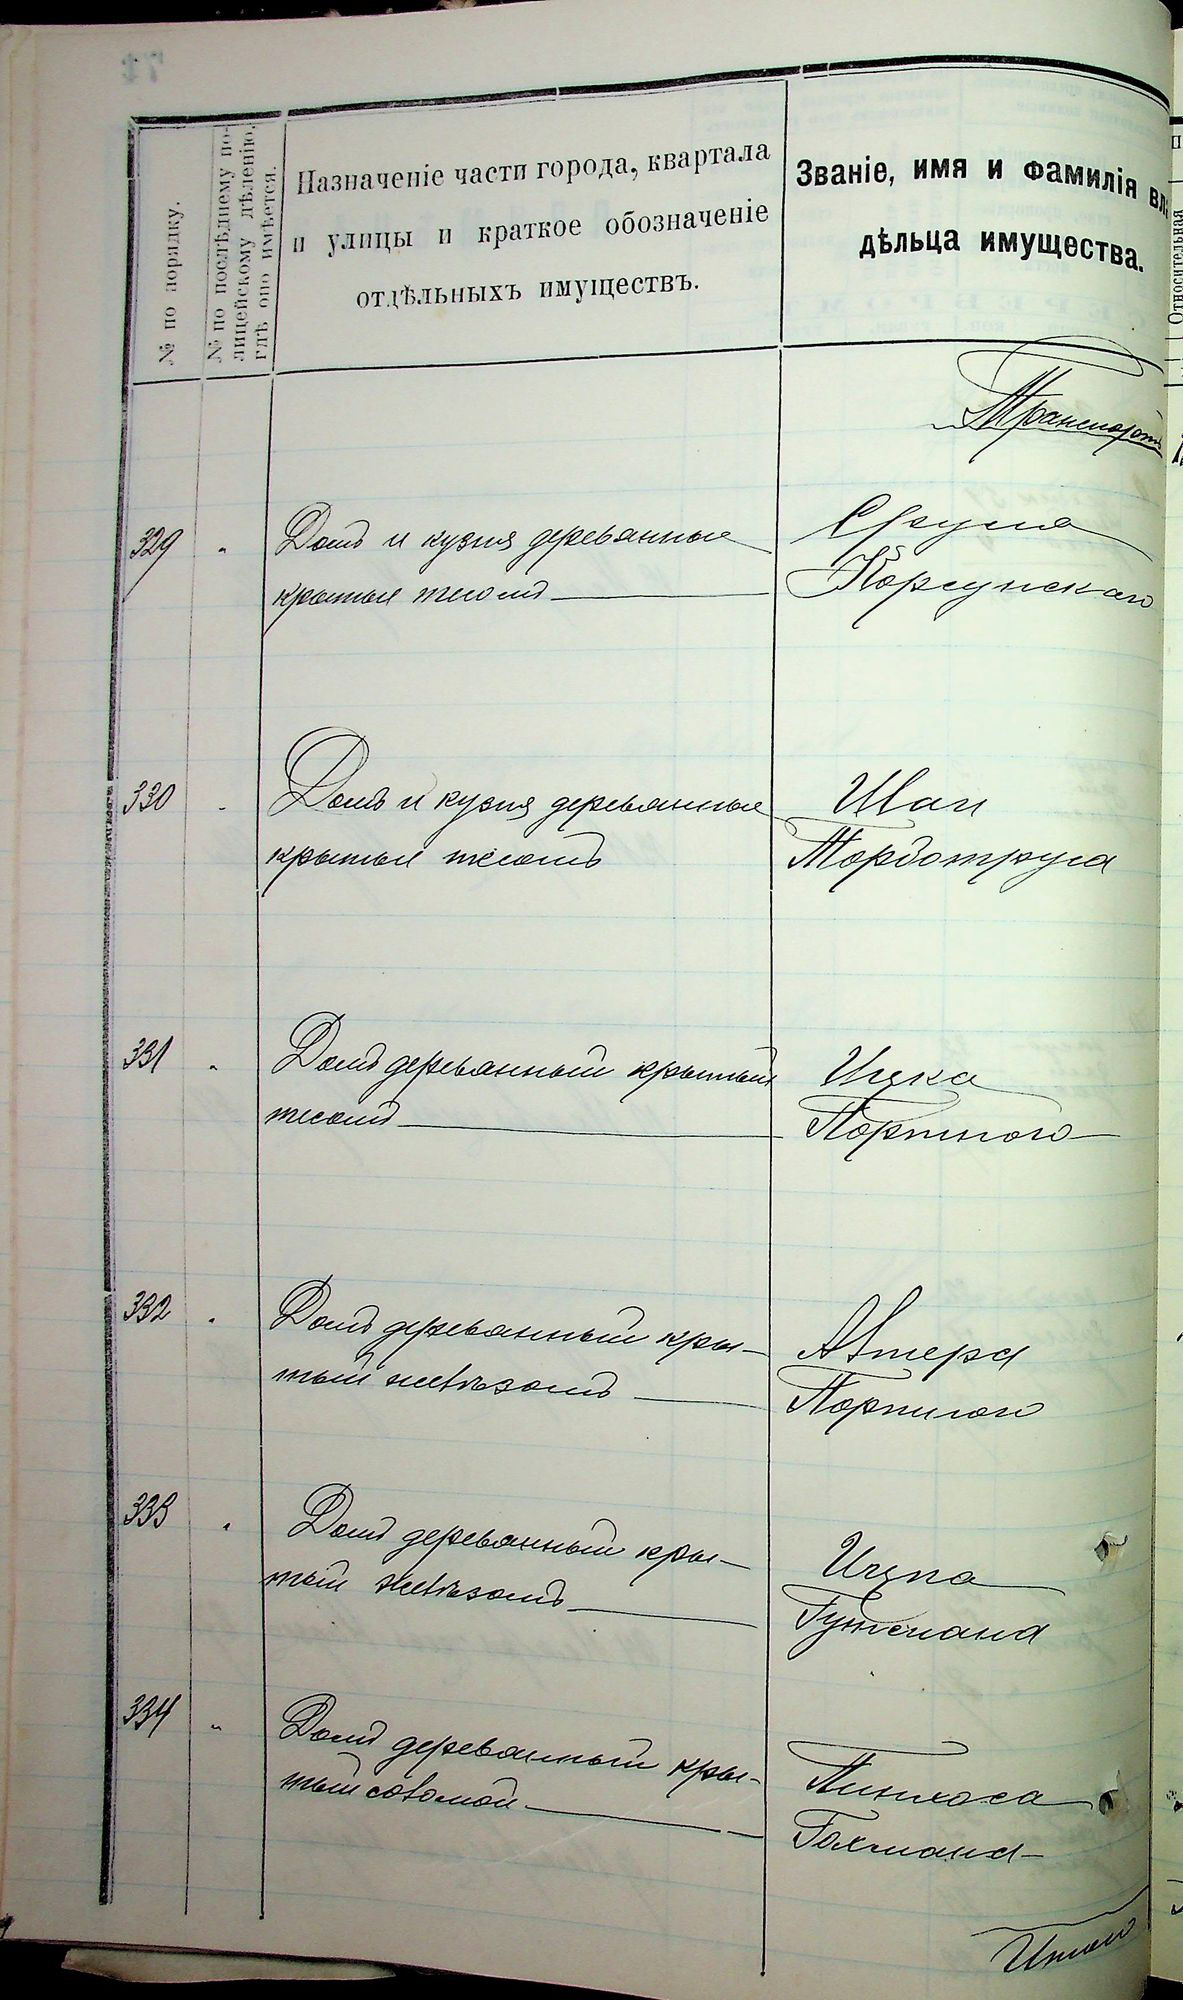 № по порядку.
№ по послѣднему по-
лицейскому дѣленію,
гдѣ оно имѣется.
Назначеніе части города, квартала
и улицы и краткое обозначеніе
отдѣльныхъ имуществъ.
Званіе, имя и фамилія вла
дѣльца имущества.
Относительная
Транспортъ
329 " Домъ и кузня деревянные Сруля
крытые тесомъ Корсунскаго
330 " Домъ и кузня деревянные Иван
крытые тесомъ Торботруса
331 " Домъ деревянный крытый Ицка
тесомъ Портного
332 " Домъ деревянный кры-
тый желѣзомъ Портного
333 " Домъ деревянный кры- Ицка
тый желѣзомъ Гутмана
334 " Домъ деревянный кры- Пинхоса
тый соломой Гохмана
Итого